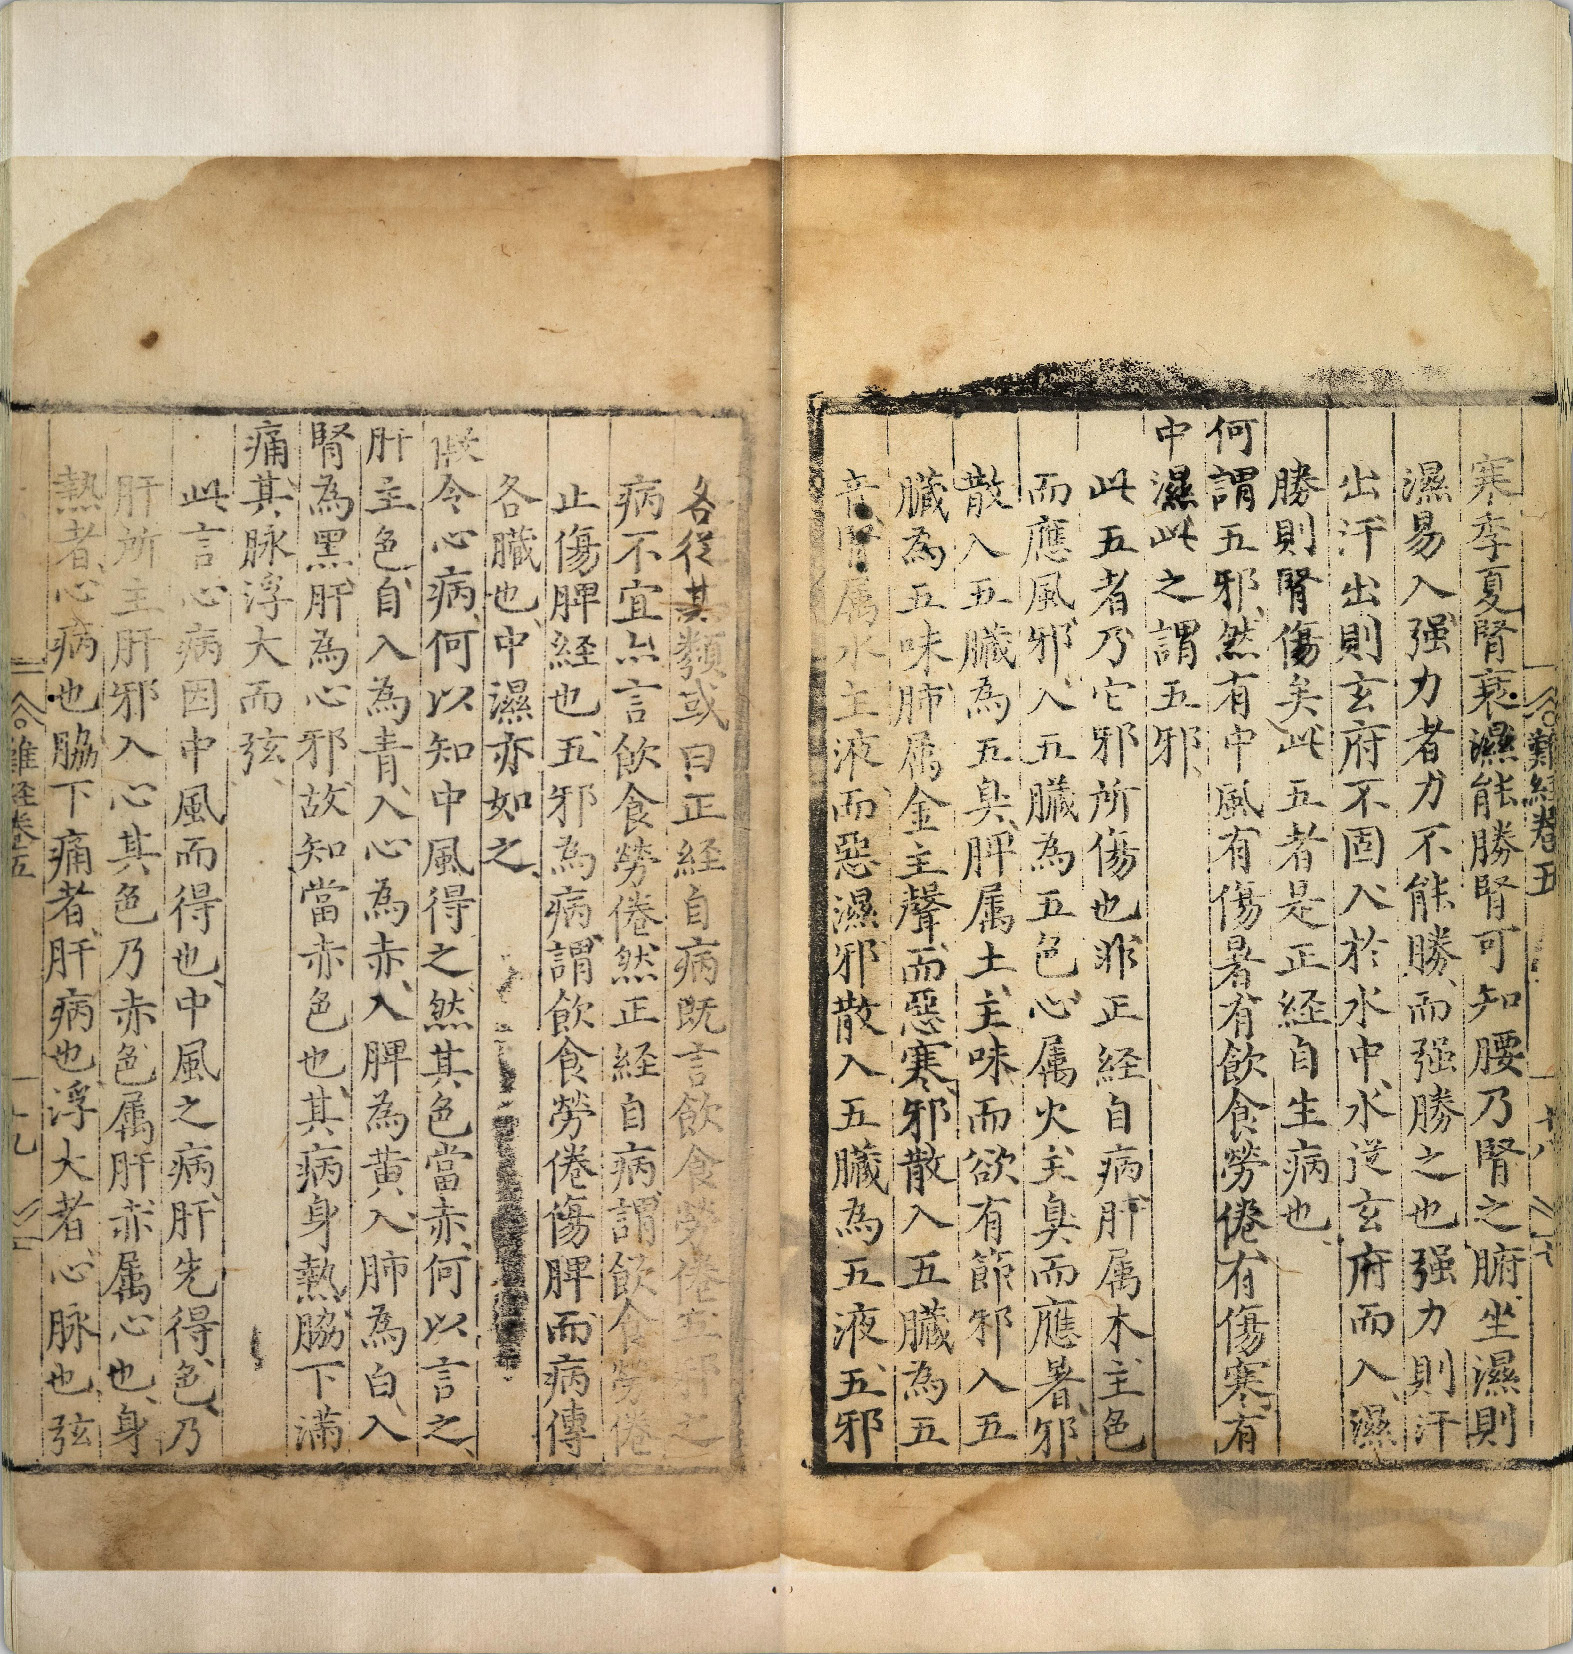 難經卷五
十八
寒季夏腎衰濕能勝腎可知腰乃腎之腑坐濕則
濕易入强力者力不能勝而强勝之也强力則汗
出汗出則玄府不固入於水中水逆玄府而入濕
勝則腎傷矣此五者是正経自生病也
何謂五邪然有中風有傷暑有飲食勞倦有傷寒有
中濕此之謂五邪
此五者乃它邪所傷也非正経自病肝属木主色
而應風邪入五臓為五色心属火主臭而應暑邪
散入五臓為五臭脾属土主味而欲有節邪入五
臓為五味肺属金主聲而惡寒邪散入五臓為五
音腎属水主液而惡濕邪散入五臓為五液五邪
各從其類或曰正経自病既言飲食勞倦五邪之
病不宜亦言飲食勞倦然正経自病謂飲食勞倦
止傷脾経也五邪為病謂飲食勞倦傷脾而病傳
各臓也中濕亦如之
假令心病何以知中風得之然其色當赤何以言之
肝主色自入為青入心為赤入脾為黄入肺為白入
腎為黑肝為心邪故知當赤色也其病身熱脇下滿
痛其脉浮大而弦
此言心病因中風而得也中風之病肝先得色乃
肝所主肝邪入心其色乃赤色属肝赤属心也身
熱者心病也脇下痛者肝病也浮大者心脉也弦
難経卷五
十九